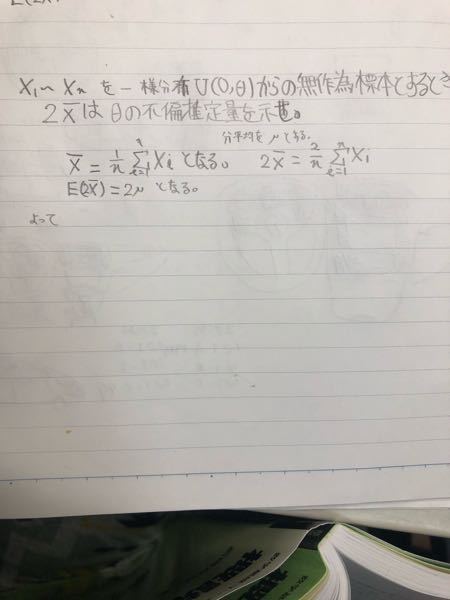 X₁~Xₙ を一様分布 U(0,θ)からの無作為標本とするとき
2X̄ は θの不偏推定量を示せ。
X̄ = 1/n Σⁿᵢ₌₁ Xᵢ となる。 平均を μ とする。 2X̄ = 2/n Σⁿᵢ₌₁ Xᵢ
E(2X̄) = 2μ となる。
よって